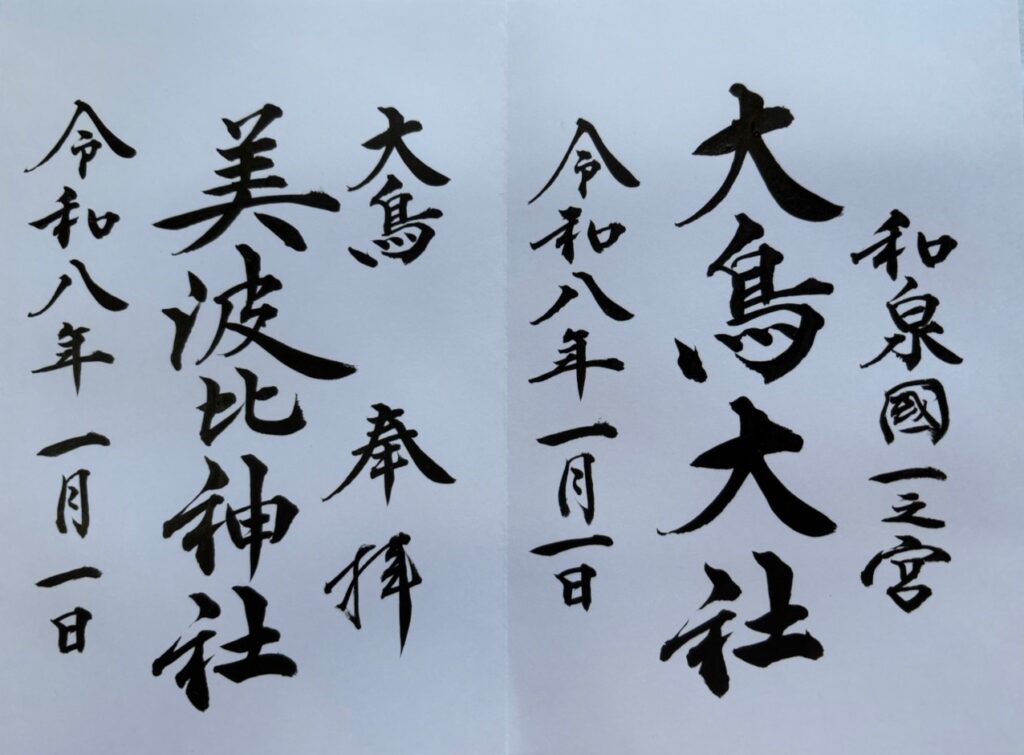 和泉國一之宮
大鳥大社
令和八年一月一日
大鳥 奉拝
美波比神社
令和八年一月一日